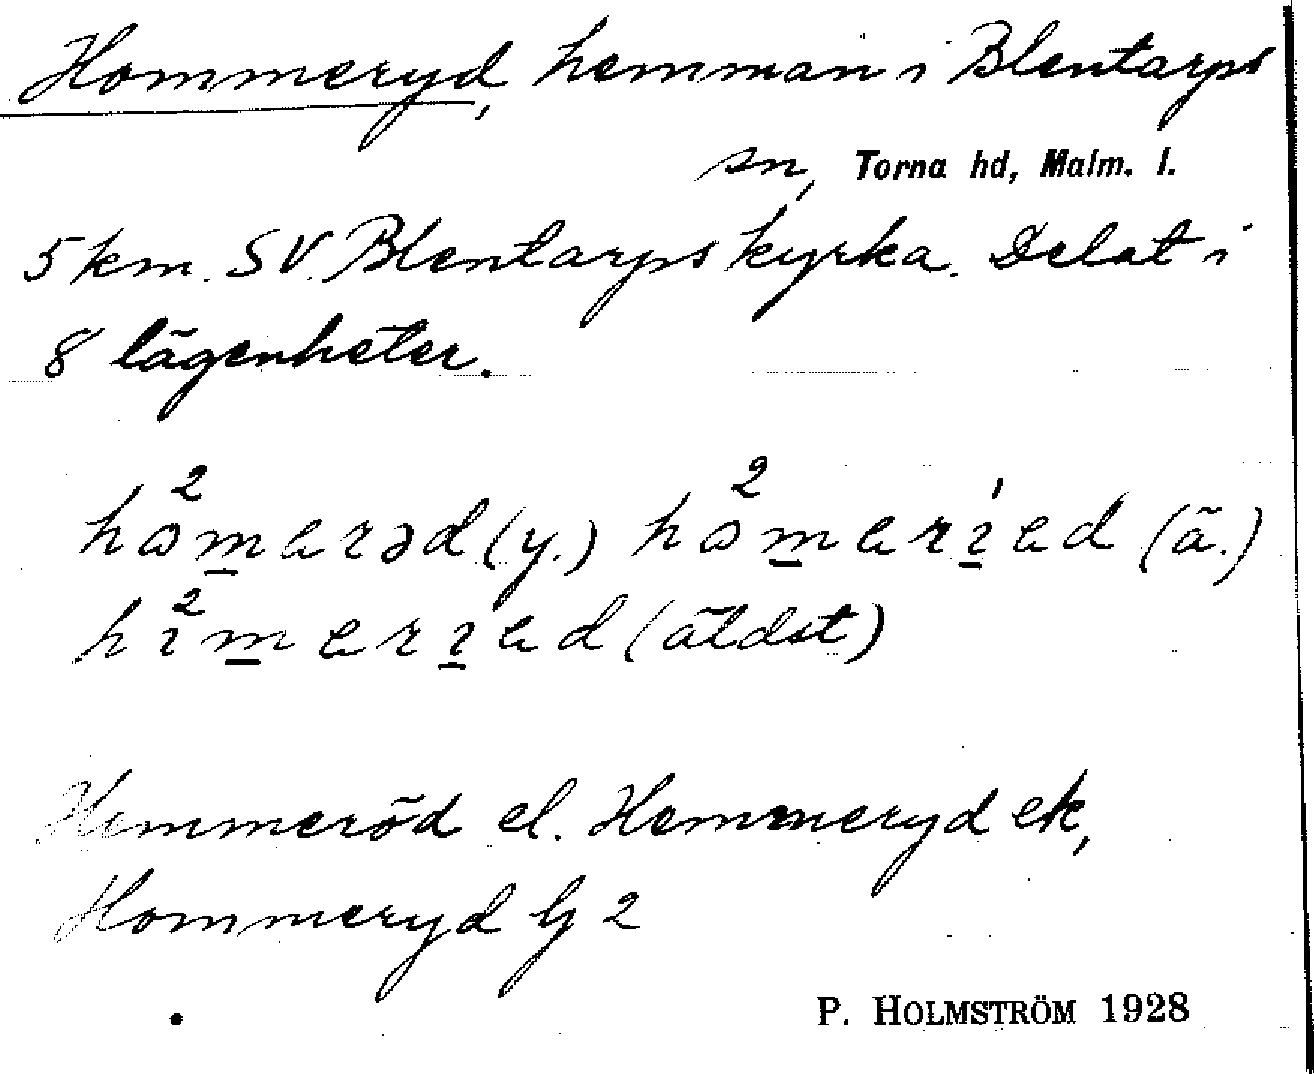 Hommeryd, hemman i Blentarps
sn, Torna hd, Malm. l.
5 km. SV. Blentarps kyrka. Delat i
8 lägenheter.
(y.) (ä.)
(äldst)
Hemmeröd el. Hemmeryd ek,
Hommeryd Gj 2
P. HOLMSTRÖM 1928